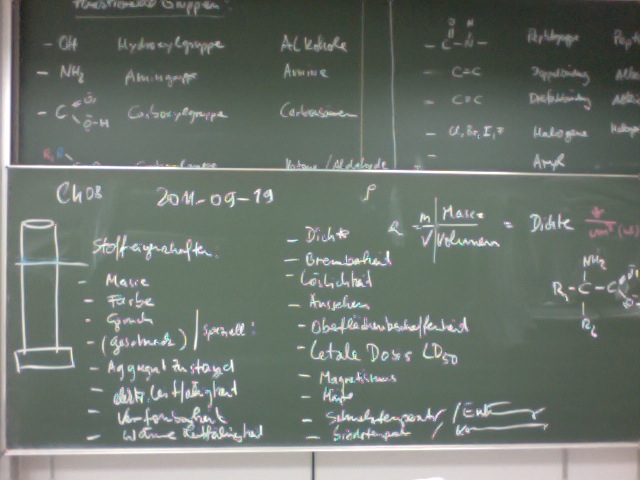 Funktionelle Gruppen:
- OH Hydroxylgruppe Alkohole
- NH2 Aminogruppe Amine
- C O O-H Carboxylgruppe Carbonsäuren
Ketone/Aldehyde
O H
- C - N - Peptidgruppe
- C=C Doppelbindung
- C≡C Dreifachbindung
- Cl, Br, I, F Halogene
-
CHOB 2011-09-19
Stoffeigenschaften:
- Masse
- Farbe
- Geruch
- (Geschmack) speziell:
- Aggregatzustand
- elektr. Leitfähigkeit
- Verformbarkeit
- Wärmeleitfähigkeit
- Dichte
- Brennbarkeit
- Löslichkeit
- Aussehen
- Oberflächenbeschaffenheit
- Letale Dosis LD50
- Magnetismus
- Härte
- Schmelztemperatur /
- Siedetemperatur /
ρ
m Masse
= = Dichte
V Volumen
NH2
R1 - C - C
R2